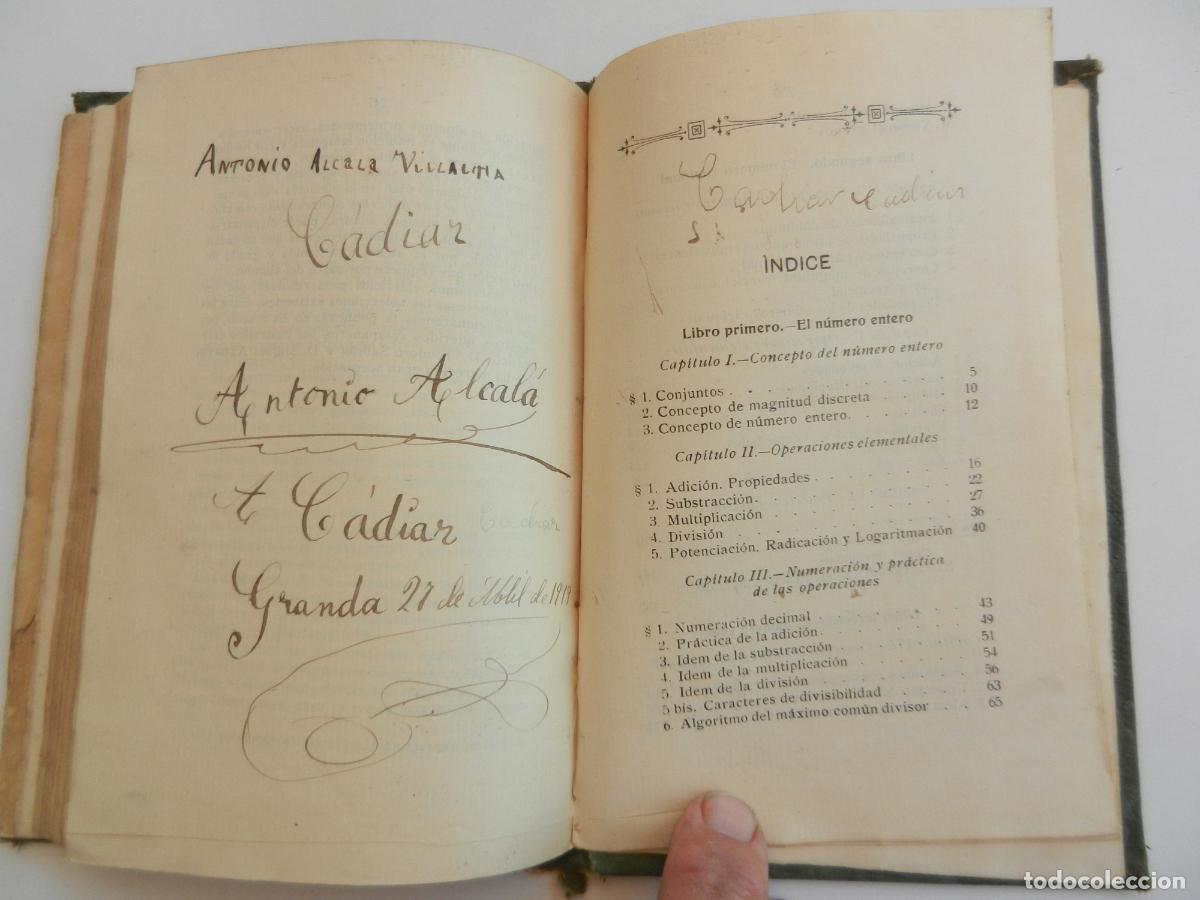 ANTONIO ALCALA VILLALTIA
Cádiar
Antonio Alcalá
A Cádiar Cadiar
Granda 27 de Ablil de 1919
Cadiar Cadiar
ÍNDICE
Libro primero.—El número entero
Capítulo I.—Concepto del número entero
§ 1. Conjuntos . . . . . . . . . 5
2. Concepto de magnitud discreta . . . . 10
3. Concepto de número entero. . . . . 12
Capítulo II.—Operaciones elementales
§ 1. Adición. Propiedades . . . . . . 16
2. Substracción. . . . . . . . . 22
3. Multiplicación . . . . . . . . 27
4. División . . . . . . . . . . 36
5. Potenciación. Radicación y Logaritmación 40
Capítulo III.—Numeración y práctica
de las operaciones
§ 1. Numeración decimal . . . . . . 43
2. Práctica de la adición. . . . . . 49
3. Idem de la substracción . . . . . 51
4. Idem de la multiplicación . . . . . 54
5. Idem de la división . . . . . . 56
5 bis. Caracteres de divisibilidad . . . . 63
6. Algoritmo del máximo común divisor . . 65
todocoleccion